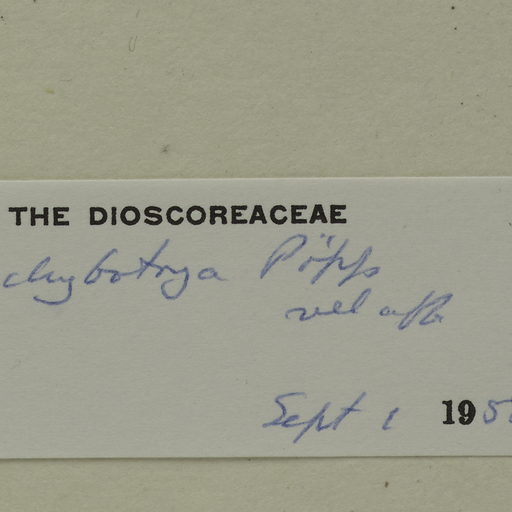 THE DIOSCOREACEAE
chybotrya Pöpp
vel aff.
Sept 1 195